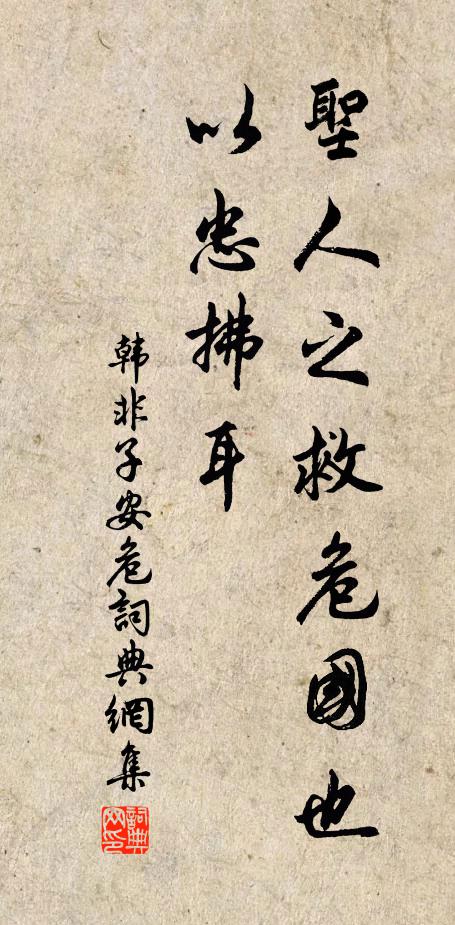 聖人之救危國也
以忠拂耳
韩非子安危詞典網集
詞典网印